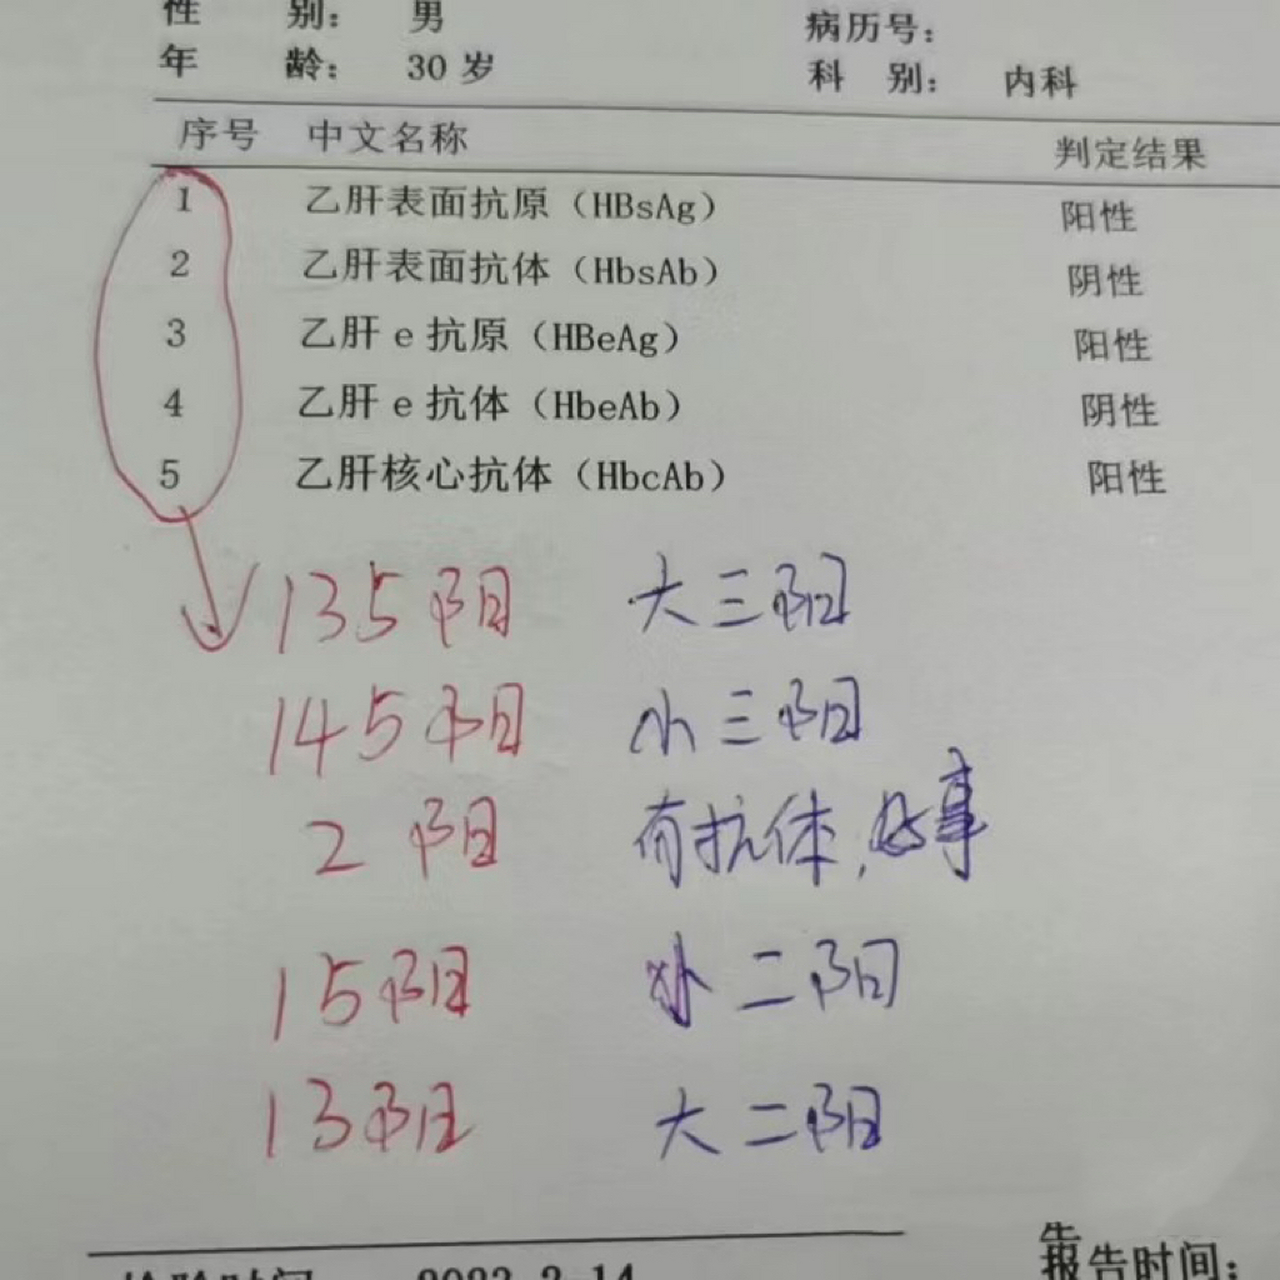 性 别： 男 病历号：
年 龄： 30 岁 科 别： 内科
序号 中文名称 判定结果
1 乙肝表面抗原（HBsAg） 阳性
2 乙肝表面抗体（HbsAb） 阴性
3 乙肝 e 抗原（HBeAg） 阳性
4 乙肝 e 抗体（HbeAb） 阴性
5 乙肝核心抗体（HbcAb） 阳性
135阳 大三阳
145阳 小三阳
2 阳 有抗体，好事
15阳 小二阳
13阳 大二阳
检验时间 2023-2-14 报告时间：